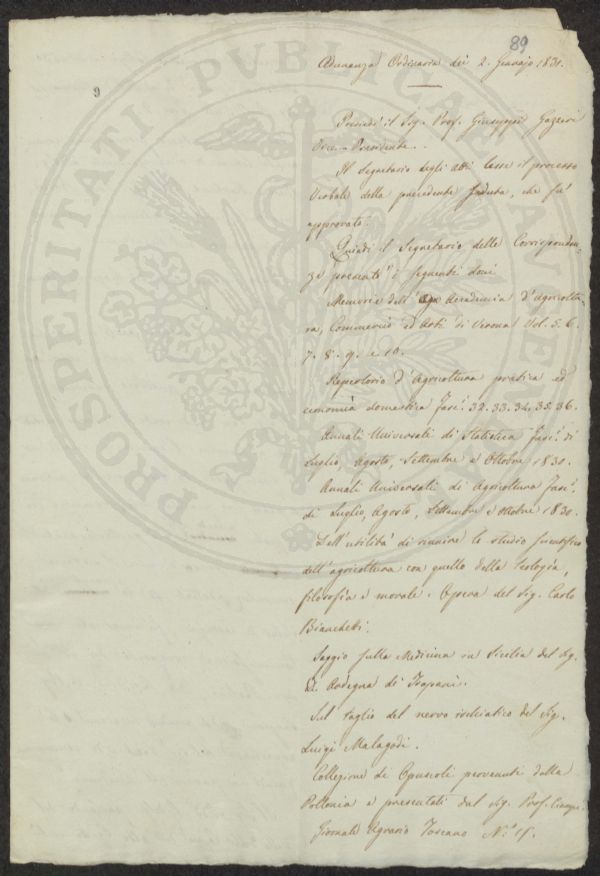 89
9
PROSPERITATI PUBLICAE AUGENDAE
Adunanza Ordinaria dei 2. Gennajo 1831.
Presiede il Sig. Prof. Giuseppe Gazzeri
Vice-Presidente.
Il Segretario degli atti lesse il processo
Verbale della precedente seduta, che fu
approvato.
Quindi il Segretario delle Corrisponden-
ze presentò i seguenti doni
Memorie dell' Accademia d'Agricoltu-
ra, Commercio ed Arti di Verona Vol. 5. 6.
7. 8. 9. e 10.
Repertorio d'Agricoltura pratica ed
economia domestica Fasc.i 32. 33. 34. 35. 36.
Annali Universali di Statistica Fasc.i di
Luglio, Agosto, Settembre e Ottobre 1830.
Annali Universali di Agricoltura Fasc.i
di Luglio, Agosto, Settembre e Ottobre 1830.
Dell'utilità di riunire lo studio scientifico
dell'agricoltura con quello della teologia,
filosofia e morale. Opera del Sig. Carlo
Bianchetti.
Saggio sulla Medicina in Sicilia del Sig.
di Trapani.
Sul taglio del nervo ischiatico del Sig.
Luigi Malagodi.
Collezione di Opuscoli provenienti dalla
Pollonia e presentati dal Sig. Prof. Ciampi.
Giornale Agrario Toscano N.o 15.